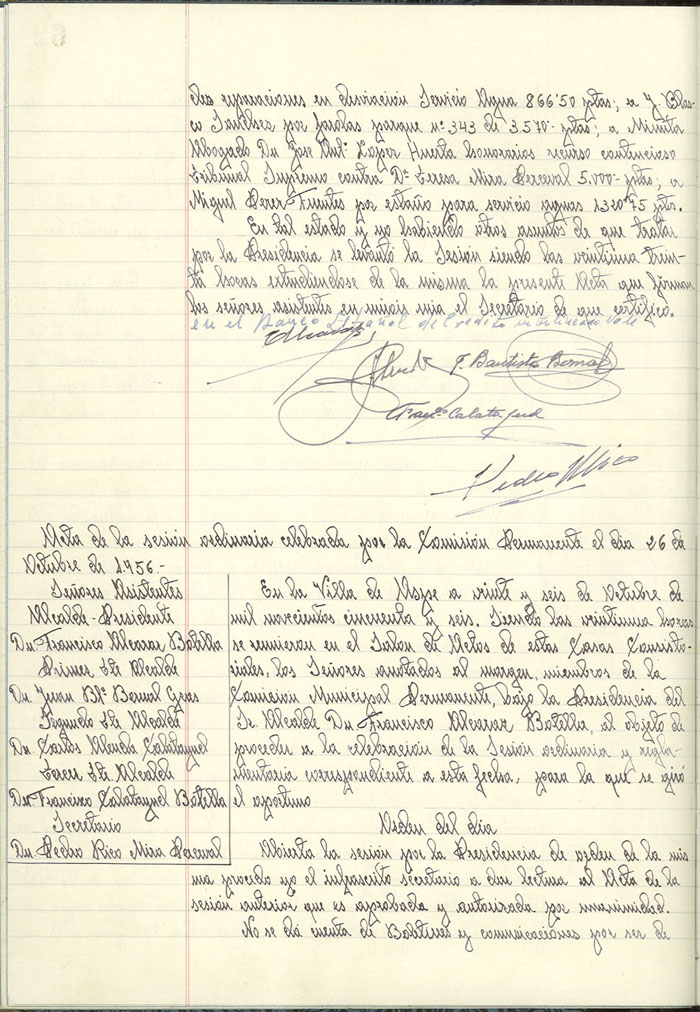 das reparaciones en desviación Servicio Agua 866'50 ptas; a J. Blas-
co Sanelses por farolas parque nº 343 de 3.570- ptas; a Minuta
Abogado Dn Jose Antº Lopez Huerta honorarios recurso contencioso
Tribunal Supremo contra Dª Teresa Mira Perceval 5.000- ptas; a
Miguel Perez Fuentes por estaño para servicio aguas 1320'75 ptas.
En tal estado y no habiendo otros asuntos de que tratar
por la Presidencia se levantó la Sesión siendo las veintiuna trein-
ta horas extendiendose de la misma la presente Acta que firman
los señores asistentes en unión mia el Secretario de que certifico.
en el Banco Español de Credito interlineado Vale
J. Bautista Bernal
Franco Calatayud
Pedro Rico
Acta de la sesión ordinaria celebrada por la Comisión Permanente el dia 26 de
Octubre de 1956.-
Señores Asistentes
Alcalde-Presidente
Dn Francisco Alcaraz Botella
Primer Tte Alcalde
Dn Juan Btª Bernal Gras
Segundo Tte Alcalde
Dn Carlos Calatayud
Tercer Tte Alcalde
Dn Francisco Calatayud Botella
Secretario
Dn Pedro Rico Mira Perceval
En la Villa de Aspe a veinte y seis de Octubre de
mil novecientos cincuenta y seis. Siendo las veintiuna horas
se reunieron en el Salon de Actos de estas Casas Consisto-
riales, los Señores anotados al margen, miembros de la
Comisión Municipal Permanente, bajo la Presidencia del
Sr. Alcalde Dn Francisco Alcaraz Botella, al objeto de
proceder a la celebración de la Sesión ordinaria y regla-
mentaria correspondiente a esta fecha, para la que se giró
el oportuno
Orden del dia
Abierta la sesión por la Presidencia de orden de la mis
ma procedo yo el infrascrito secretario a dar lectura al Acta de la
sesión anterior que es aprobada y autorizada por unanimidad.
No se dá cuenta de Boletines y comunicaciones por ser de